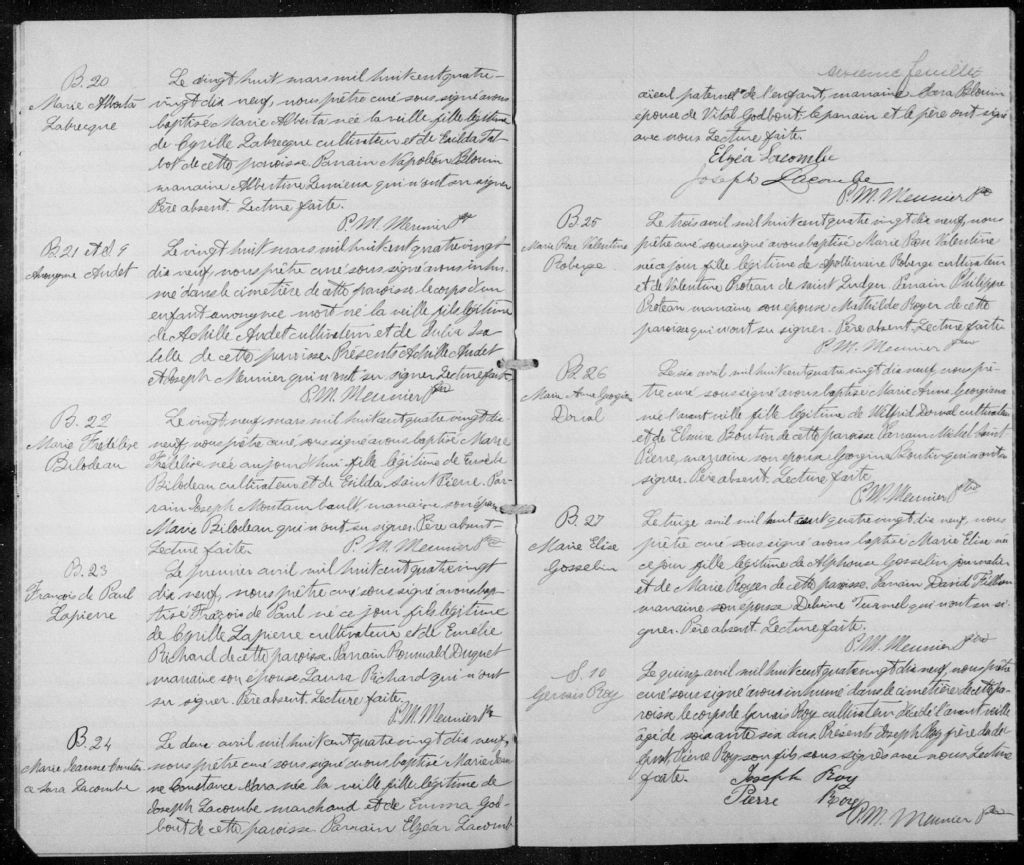 B. 20
Marie Alberta
Labrecque
Le vingt huit mars mil huit cent quatre-
vingt dix neuf, nous prêtre curé sous signé avons
baptisé Marie Alberta née la veille fille légitime
de Cyrille Labrecque cultivateur et de Exilda Tal-
bot de cette paroisse. Parrain Napoléon Blouin
marraine Albertine Lemieux qui n'ont su signer
Père absent. Lecture faite.
P. M. Meunier Ptre
B. 21 et S. 9
Anonyme Audet
Le vingt huit mars mil huit cent quatre vingt
dix neuf, nous prêtre curé sous signé avons inhu-
mé dans le cimetière de cette paroisse le corps d'un
enfant anonyme mort né la veille fils légitime
de Achille Audet cultivateur et de Julia La
belle de cette paroisse. Présents Achille Audet
& Joseph Meunier qui n'ont su signer. Lecture faite.
P. M. Meunier Ptre
B. 22
Marie Fredelise
Bilodeau
Le vingt neuf mars mil huit cent quatre vingt dix
neuf, nous prêtre curé sous signé avons baptisé Marie
Fredelise née aujourd'hui fille légitime de
Bilodeau cultivateur et de Exilda Saint Pierre. Par-
rain Joseph Montambault, marraine son épouse
Marie Bilodeau qui n'ont su signer. Père absent
Lecture faite. P. M. Meunier Ptre
B. 23
François de Paul
Lapierre
Le premier avril mil huit cent quatre vingt
dix neuf, nous prêtre curé sous signé avons bap-
tisé Fraçois de Paul né ce jour fils légitime
de Cyrille Lapierre cultivateur et de Emélie
Richard de cette paroisse. Parrain Romuald Duquet
marraine son épouse Laura Richard qui n'ont
su signer. Père absent. Lecture faite.
P. M. Meunier Ptr
B. 24
Marie Jeanne Constan-
ce Sara Lacombe
Le deux avril mil huit cent quatre vingt dix neuf,
nous prêtre curé sous signé avons baptisé Marie Jean-
ne Constance Sara née la veille fille légitime de
Joseph Lacombe marchand et de Emma God-
bout de cette paroisse. Parrain Elzéar Lacombe
sixième feuillet
aïeul paternel de l'enfant marraine Sara Blouin
épouse de Vital Godbout. le parrain et le père ont signé
avec nous Lecture faite.
Elzéa Lacombe
Joseph Lacombe
P. M. Meunier Ptre
B. 25
Marie Rose Valentine
Roberge
Le trois avril mil huit cent quatre vingt dix neuf, nous
prêtre curé sous signé avons baptisé Marie Rose Valentine
née ce jour fille légitime de Apollinaire Roberge cultivateur
et de Valentine Proteau de saint Ludger. Parrain Philippe
Proteau marraine son epouse Mathilde Royer de cette
paroisse qui n'ont su signer. Père absent. Lecture faite
P. M. Meunier Ptre
B. 26
Marie Anne Georgia
Dorval
Le six avril mil huit cent quatre vingt dix neuf nous prê-
tre curé sous signé avons baptisé Marie Anne Georgiana
née l'avant veille fille légitime de Wilfrid Dorval cultivateur
et de Elmire Boutin de cette paroisse. Parrain Michel Saint
Pierre, marraine son épouse Georgina Boutin qui n'ont su
signer. Père absent. Lecture faite.
P. M. Meunier Ptre
B. 27
Marie Elise
Gosselin
Le treize avril mil huit cent quatre vingt dix neuf, nous
prêtre curé sous signé avons baptisé Marie Elise née
ce jour fille légitime de Alphonse Gosselin journalier
et de Marie Royer de cette paroisse. Parrain David
marraine son epouse Delvine Turmel qui n'ont su si-
gner. Père absent. Lecture faite.
P. M. Meunier Ptre
S. 10
Gervais Roy
Le quinze avril mil huit cent quatre vingt dix neuf, nous prêtre
curé sous signé avons inhumé dans le cimetière de cette pa-
roisse le corps de Gervais Roy cultivateur décédé l'avant veille
âgé de soixante six ans. Présents Joseph Roy frère du dé-
funt, Pierre Roy son fils sous signés avec nous Lecture
faite.
Joseph Roy
Pierre Roy
P. M. Meunier Ptre